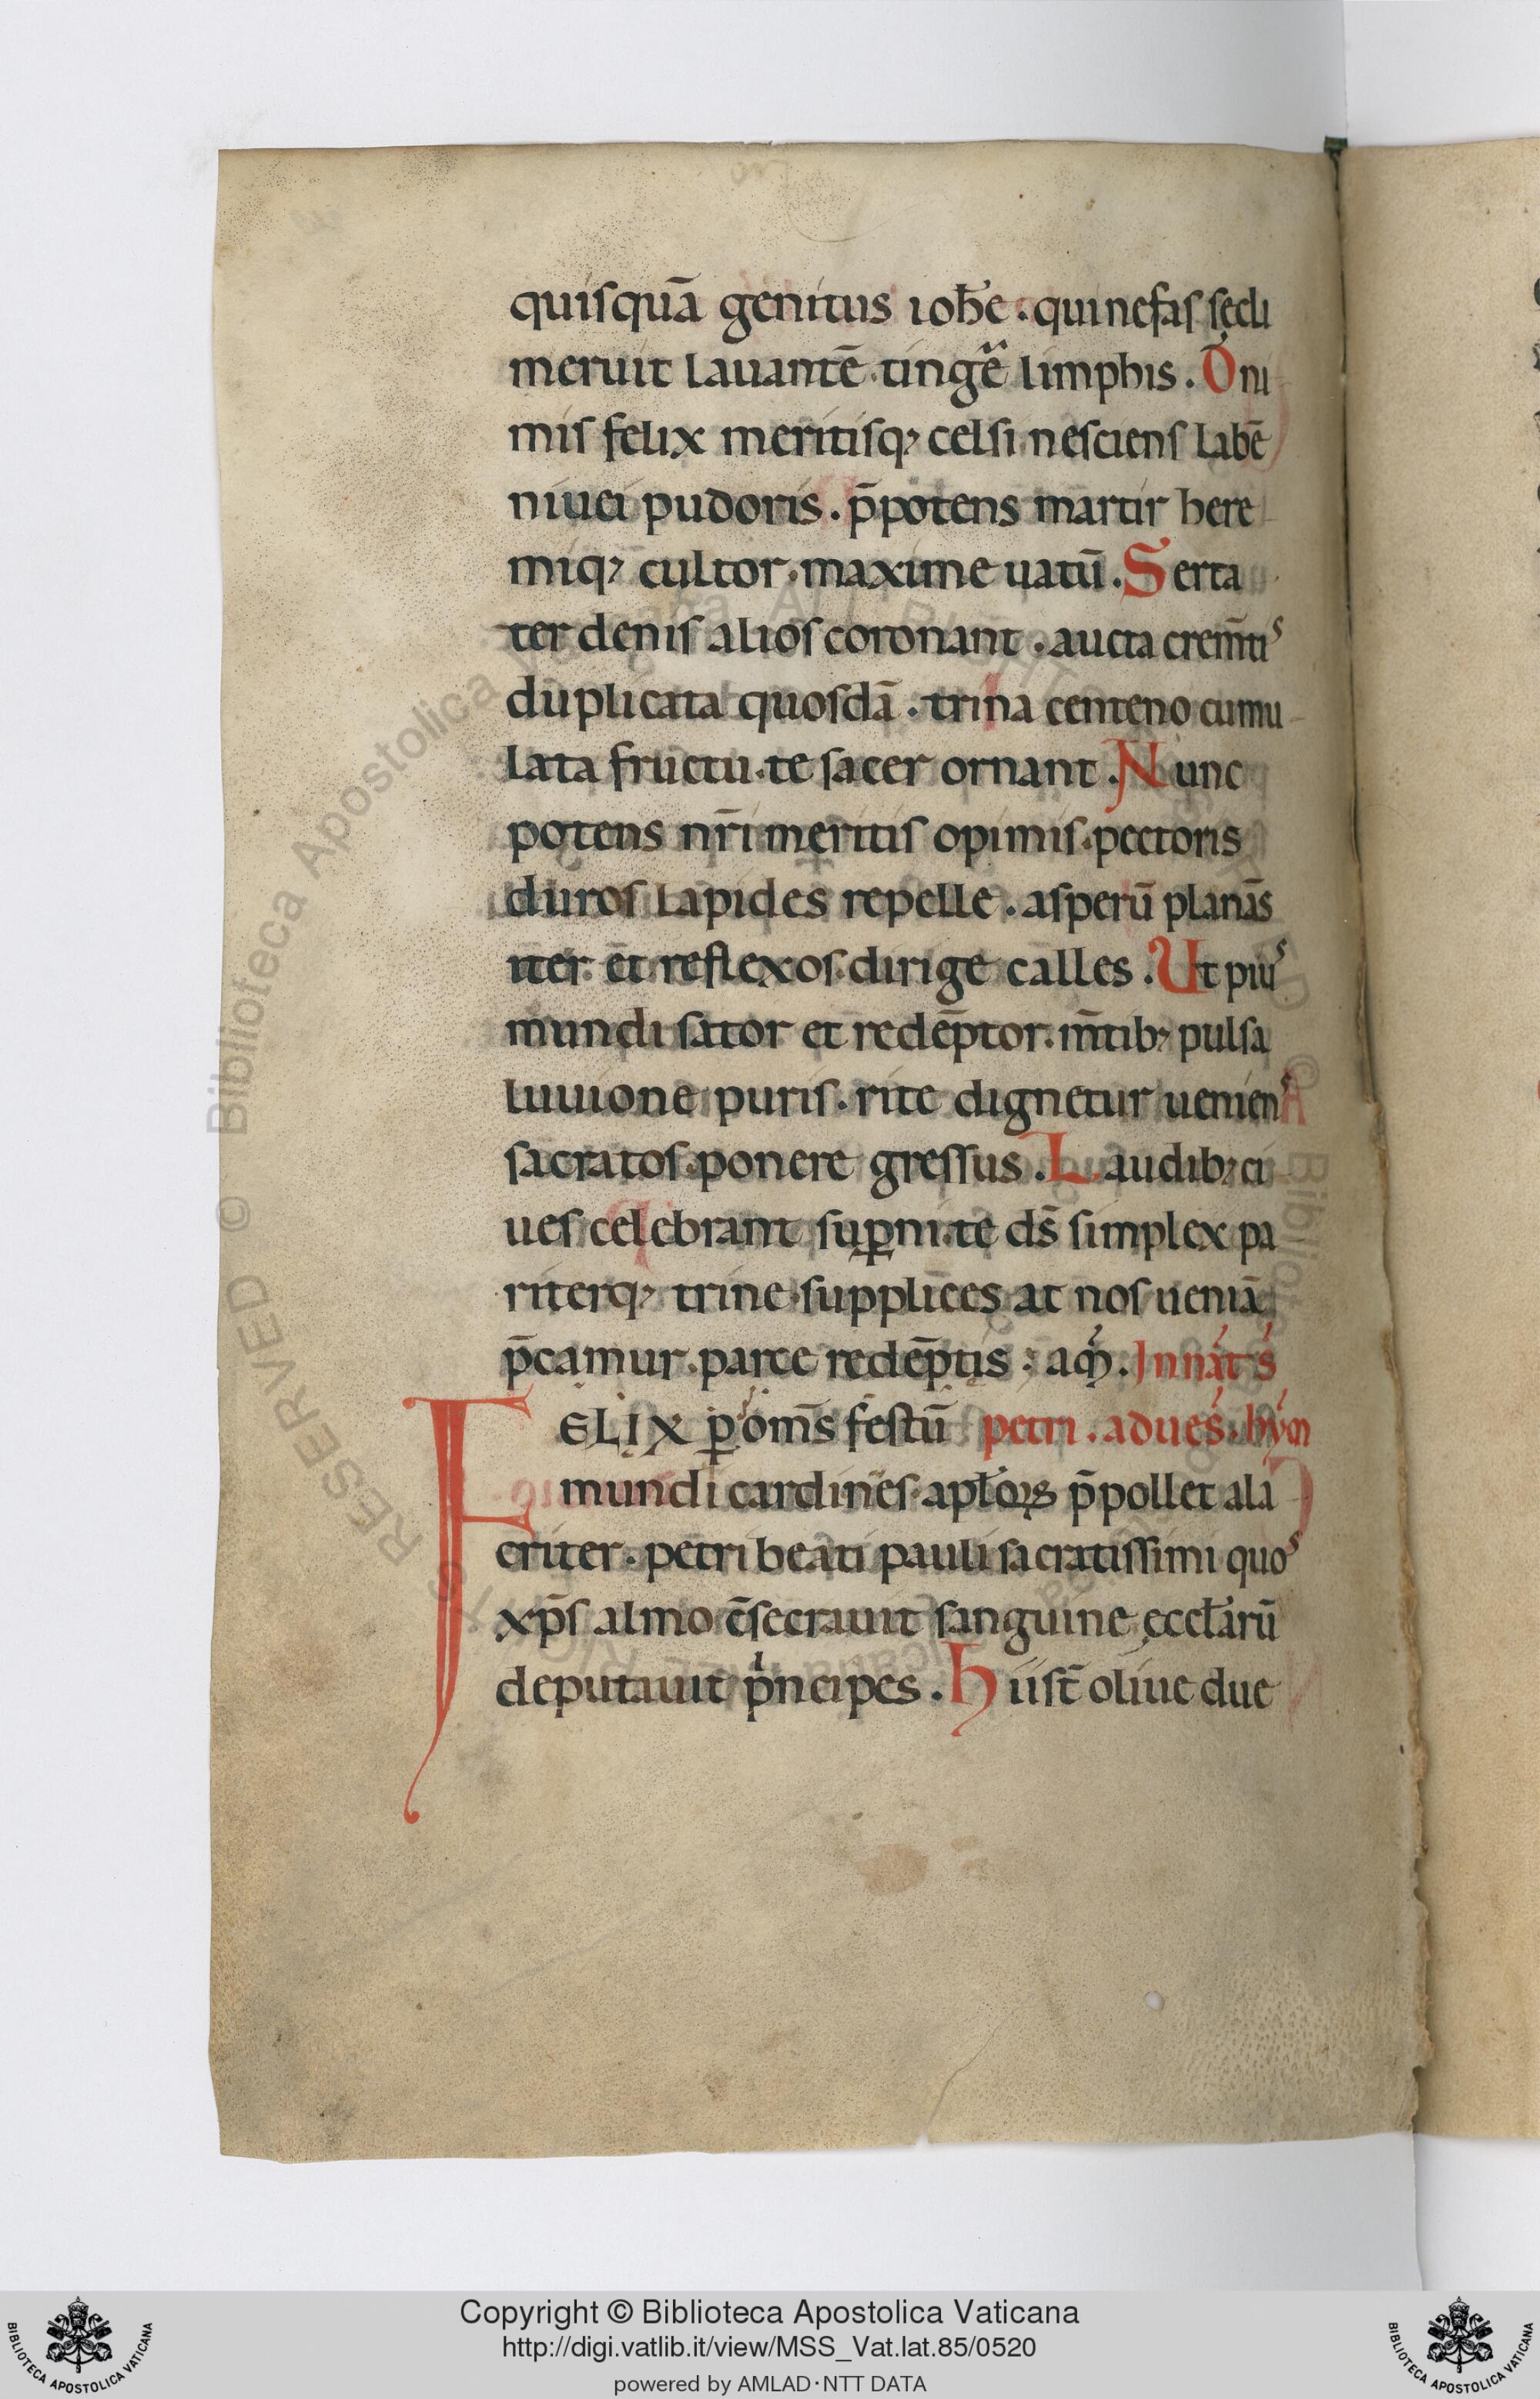 quisquā genitus ioħe · qui nefas sęcli
meruit lauantē tingē limphis . O ni
mis felix meritisq; celsi nesciens labē
niuei pudoris . p̄potens martir here
miq; cultor maxime uatū . Serta
ter denis alios coronant . aucta crem̄tis
duplicata quosdā . trina centeno cumu
lata fructu te sacer ornant . Nunc
potens nr̄i meritis opimis pectoris
duros lapides repelle . asperū planās
iter et reflexos dirige calles . Ut pius
mundi sator et redēptor m̄tib; pulsa
liuuione puris . rite dignetur ueniens
sacratos ponere gressus . Laudib; ci
ues celebrant suꝑni te ds̄ simplex pa
riterq; trine supplices at nos ueniā
p̄camur parce redēptis : am̄ . In nat̄ s̄
FELIX ꝑ om̄s festū petri . ad ues̄ . hym̄
mundi cardines apl̄oꝝ p̄pollet ala
criter . petri beati pauli sacratissimi quos
xp̄s almo c̄secrauit sanguine ęccl̄arū
deputauit pⁱncipes . Hii st̄ oliue due
Copyright © Biblioteca Apostolica Vaticana
http://digi.vatlib.it/view/MSS_Vat.lat.85/0520
powered by AMLAD·NTT DATA
BIBLIOTECA APOSTOLICA VATICANA
BIBLIOTECA APOSTOLICA VATICANA